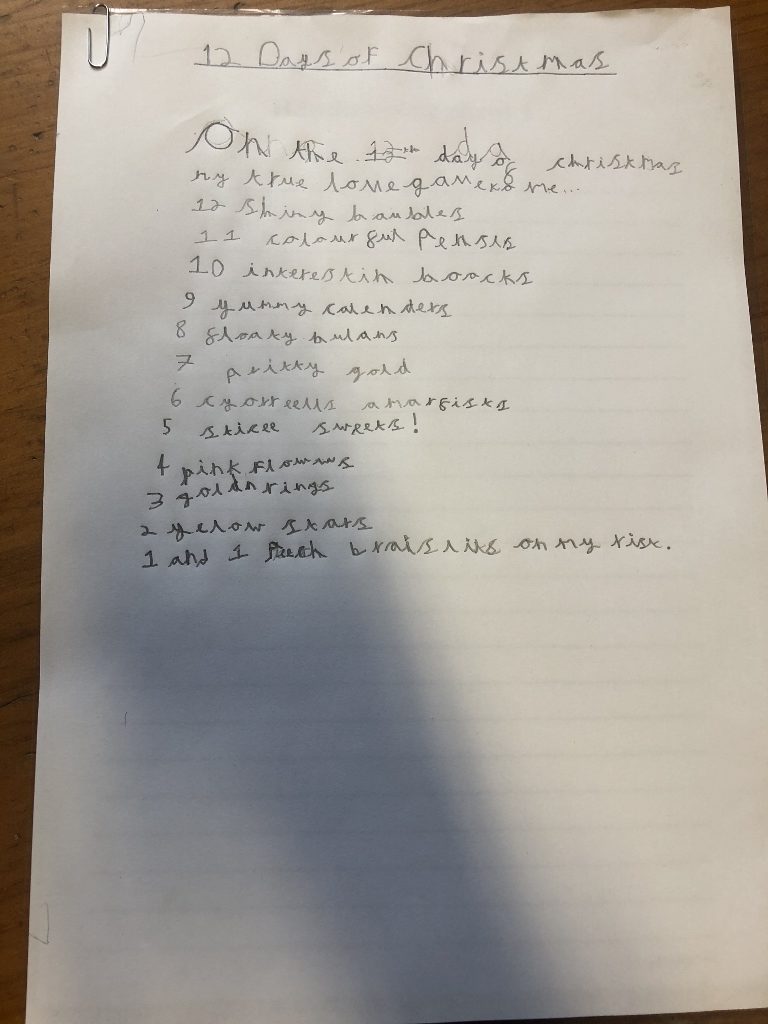 12 Days of Christmas
On the 12th day of christmas
my true love gave to me...
12 shiny baubles
11 colourful Pensis
10 interestin boocks
9 yummy calenders
8 floaty bulans
7 pritty gold
6
5 sticee sweets!
4 pink flowus
3 goldn rings
2 yelow stars
1 and 1 braislits on my rist.